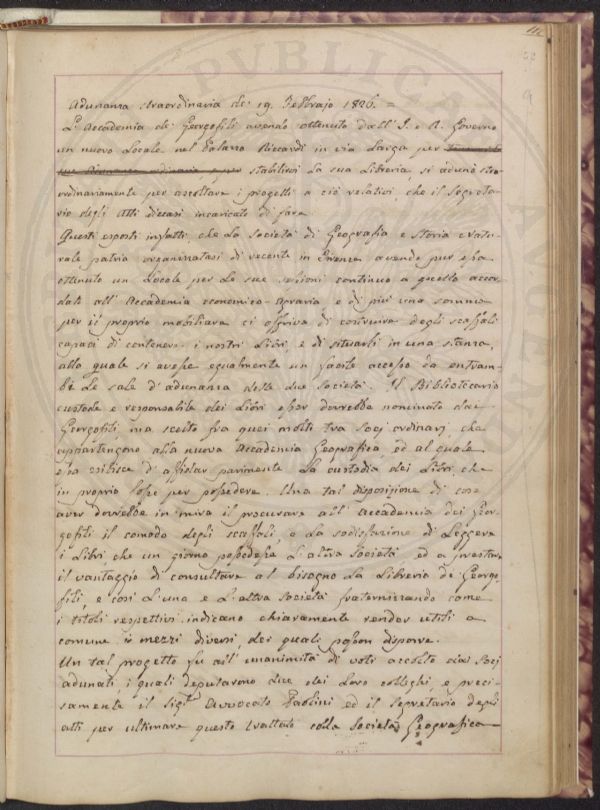 Adunanza straordinaria de' 19. Febbrajo 1826. =
L'Accademia de' Georgofili avendo ottenuto dall'I. e R. Governo
un nuovo Locale nel Palazzo Riccardi in via Larga per
stabilirvi la sua Libreria, si adunò stra-
ordinariamente per ascoltare i progetti a ciò relativi, che il Segreta-
rio degli Atti dicessi incaricato di fare.
Questi espose infatti, che la Società di Geografia e Storia natu-
rale patria organizzatasi di recente in Firenze avendo pur essa
ottenuto un Locale per le sue sessioni continuo a questo accor-
dato all'Accademia economico-agraria e di più una somma
per il proprio mobiliare ci offriva di costruire degli scaffali
capaci di contenere i nostri Libri e di situarli in una stanza,
alla quale si avesse egualmente un facile accesso da entram-
be le sale d'adunanza delle due Società. Il Bibliotecario
custode e responsabile dei Libri esser dovrebbe nominato dai
Georgofili, ma scelto fra quei molti tra Socj ordinarj, che
appartengono alla nuova Accademia Geografica, ed al quale
essa esibisce d'affidar parimente la custodia dei Libri, che
in proprio fosse per possedere. Una tal disposizione di cose
aver dovrebbe in mira il procurare all'Accademia dei Geor-
gofili il comodo degli scaffali, e la sodisfazione di Leggere
i Libri, che un giorno possedesse l'altra Società ed a prestare
il vantaggio di consultare al bisogno la Libreria de' Georgo-
fili, e così l'una e l'altra Società fraternizzando come
i titoli respettivi indicano chiaramente render utili a
comune i mezzi diversi, dei quali posson disporre.
Un tal progetto fu all'unanimità di voti accolto dai Socj
adunati, i quali deputarono due dei loro colleghi, e preci-
samente il Sig.r Avvocato Paolini ed il Segretario degli
atti per ultimare questo trattato colla Società Geografica